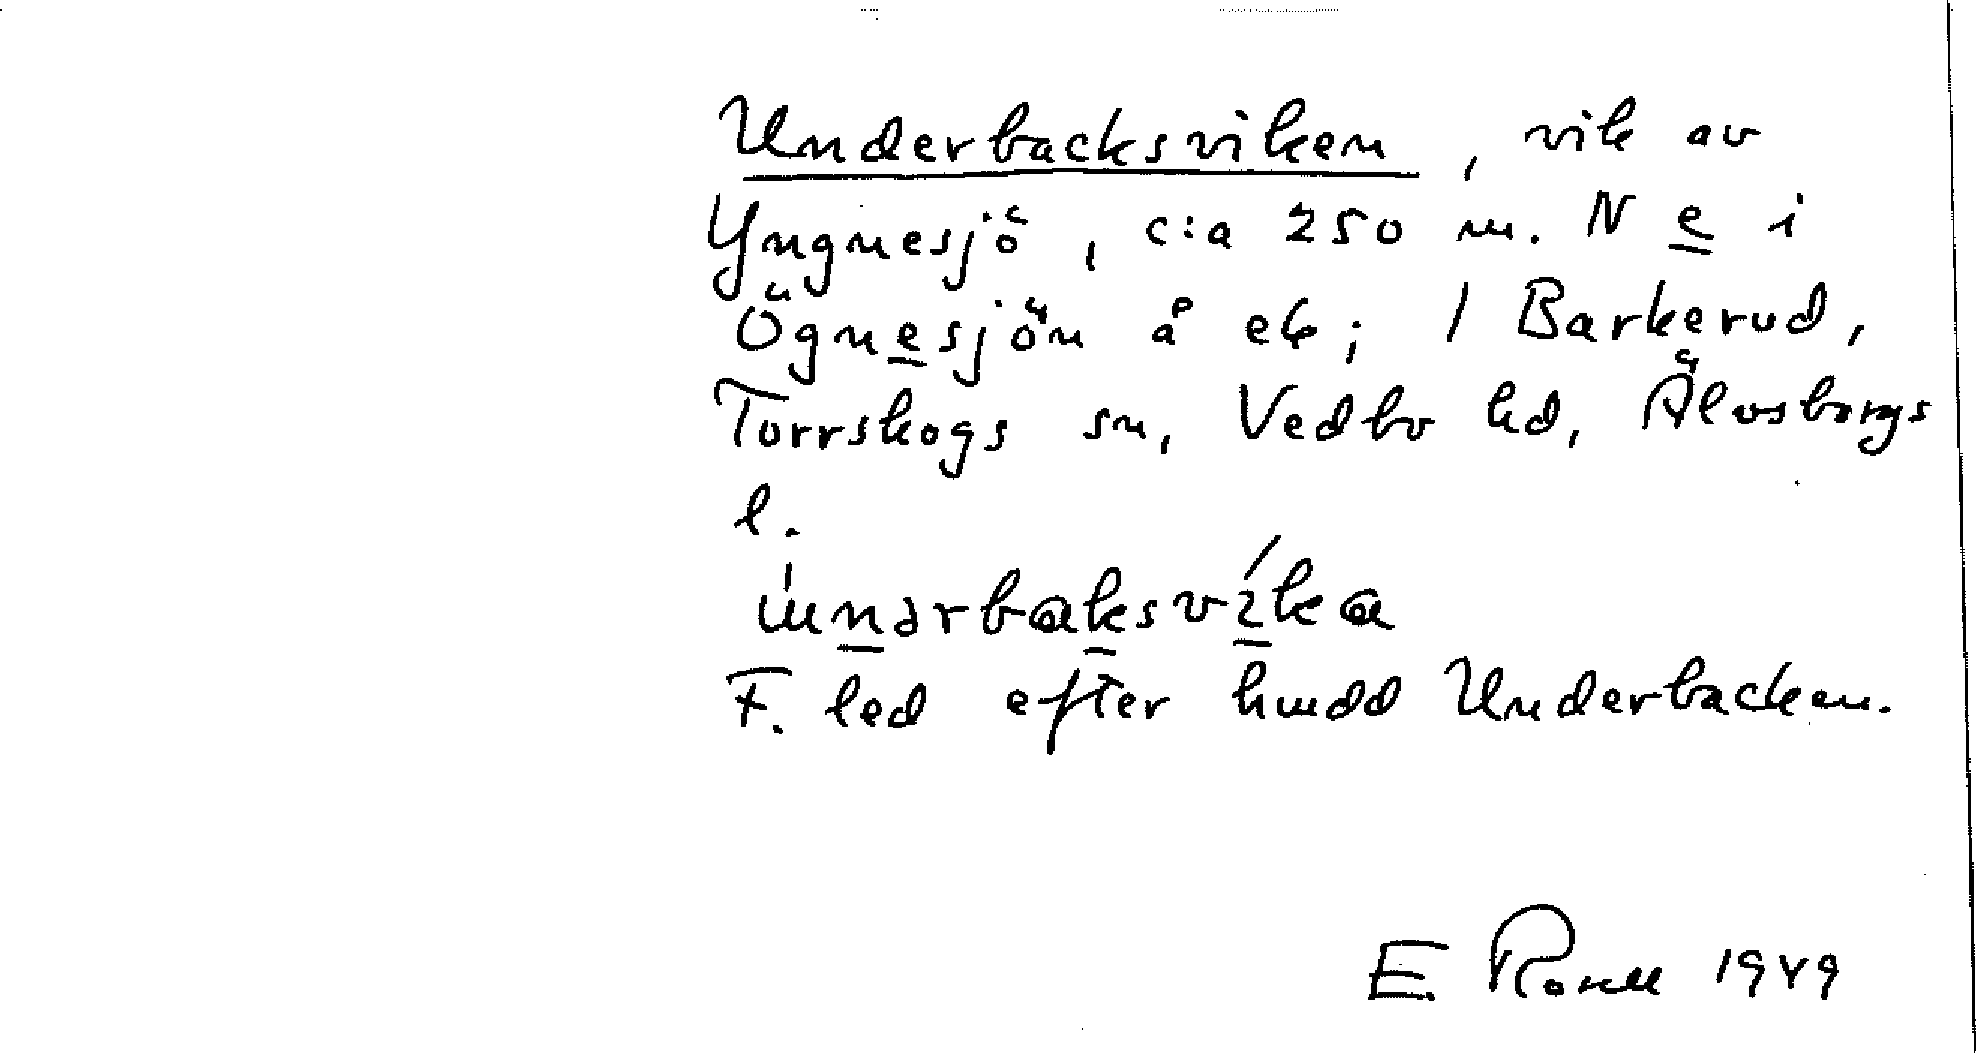 Underbacksviken, vik av
Yngnesjö, c:a 250 m. N e i
Ögnesjön å eb; 1 Barkerud,
Torrskogs sn, Vedbo hd, Älvsborgs
l.
F. led efter hmdd Underbacken.
E. 1949